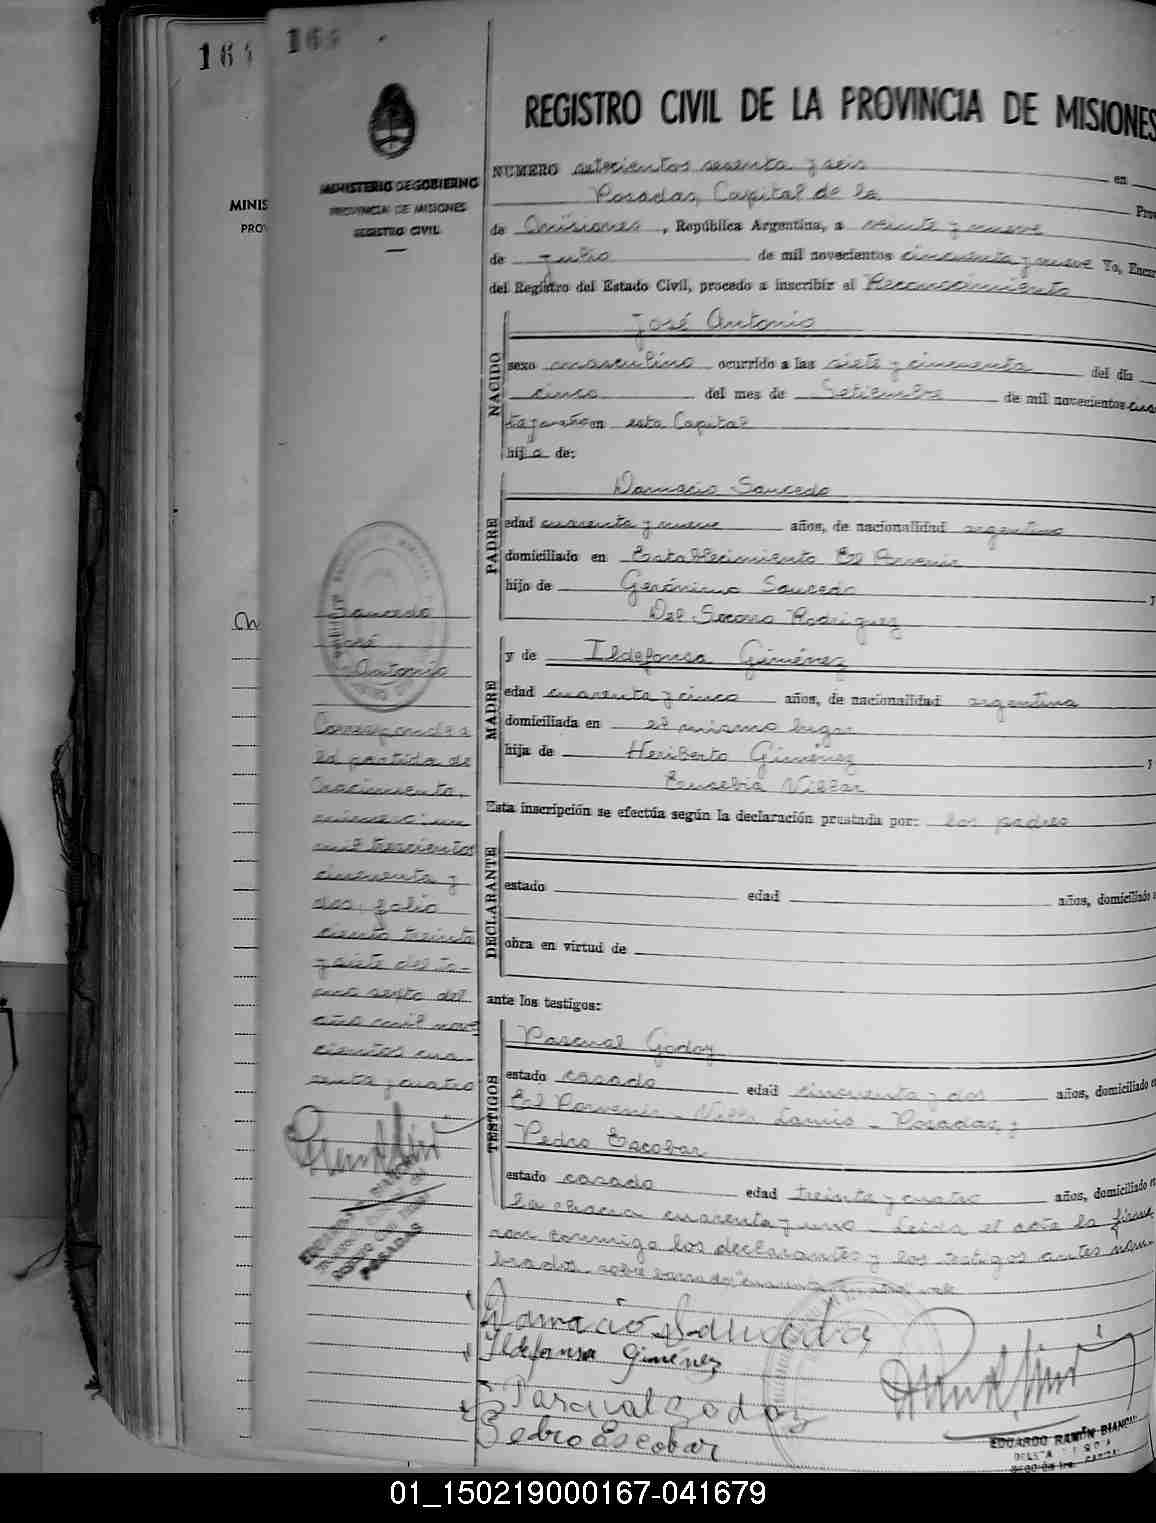 164
165
MINIS
PROV
MINISTERIO DE GOBIERNO
PROVINCIA DE MISIONES
REGISTRO CIVIL
REGISTRO CIVIL DE LA PROVINCIA DE MISIONES
NUMERO setecientos sesenta y seis en
Posadas, Capital de la Prov
de Misiones, República Argentina, a veinte y nueve
de Julio de mil novecientos cincuenta y nueve Yo, Encar
del Registro del Estado Civil, procedo a inscribir el Reconocimiento
NACIDO
José Antonio
sexo masculino ocurrido a las siete y cincuenta del dia
cinco del mes de Setiembre de mil novecientos cua
en esta Capital
hijo de:
PADRE
Damacio Saucedo
edad cuarenta y nueve años, de nacionalidad argentina
domiciliado en Establecimiento El Porvenir
hijo de Gerónimo Saucedo y
Del Socorro Rodriguez
MADRE
y de Ildefonsa Giménez
edad cuarenta y cinco años, de nacionalidad argentina
domiciliada en el mismo lugar
hija de Heriberto Giménez y
Eusebia Villar
Esta inscripción se efectúa según la declaración prestada por: los padres
DECLARANTE
estado edad años, domiciliado e
obra en virtud de
ante los testigos:
TESTIGOS
Pascual Godoy
estado casado edad cincuenta y dos años, domiciliado e
El Porvenir - Villa Lanús - Posadas, y
Pedro Escobar
estado casado edad treinta y cuatro años, domiciliado e
la chacra cuarenta y uno Leida el acta la firma
ron conmigo los declarantes y los testigos antes nom-
brados. sobre borrado vale
Saucedo
José
Antonio
Corresponde a
la partida de
Nacimiento,
número: un
mil trescientos
cincuenta y
dos, folio
ciento treinta
y siete del to-
mo sexto del
año mil nove
cientos cua-
renta y cuatro
Damacio Saucedo
Ildefonsa Giménez
Pascual Godoy
Pedro Escobar
EDUARDO RAMÓN BIANCHI
POSADAS
01_150219000167-041679